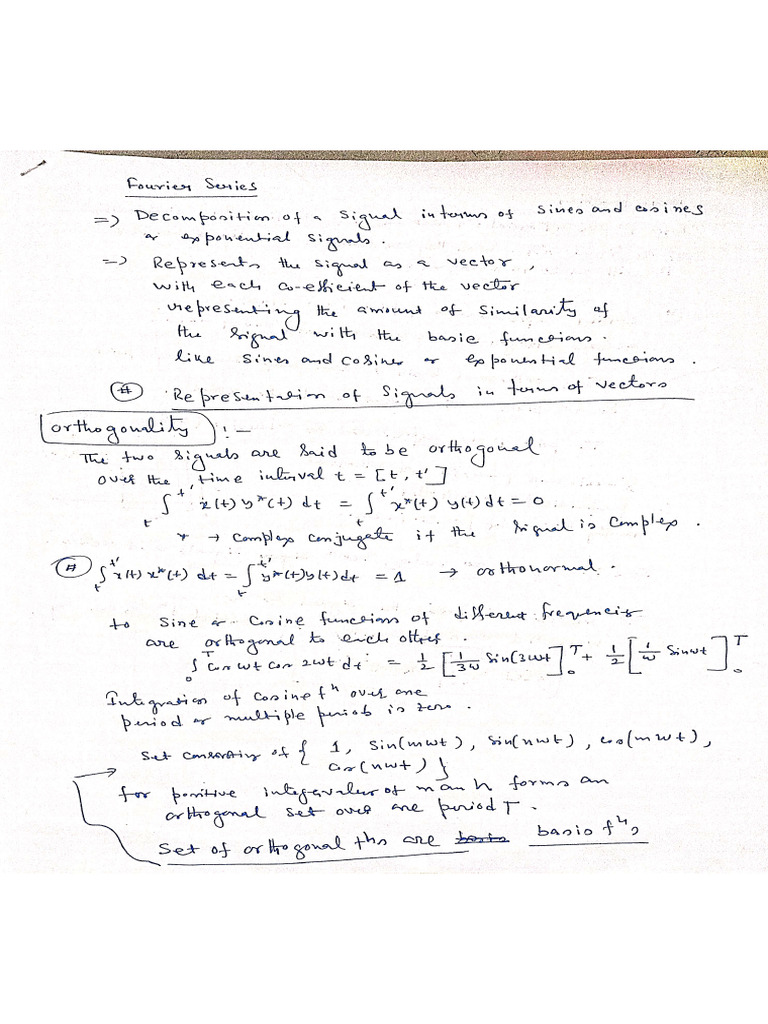 Fourier Series
=> Decomposition of a signal in terms of sines and cosines
or exponential signals.
=> Represents the signal as a vector,
with each co-efficient of the vector
representing the amount of similarity of
the signal with the basic functions.
like sines and cosines or exponential functions.
# Representation of Signals in terms of vectors
Orthogonality :-
The two signals are said to be orthogonal
over the time interval t = [t, t']
∫_t^t' x(t) y*(t) dt = ∫_t^t' x*(t) y(t) dt = 0
* → complex conjugate if the signal is complex.
# ∫_t^t' x(t) x*(t) dt = ∫_t^t' y*(t) y(t) dt = 1 → orthonormal.
to sine or cosine functions of different frequencies
are orthogonal to each other.
∫_0^T cos wt cos 2wt dt = 1/2 [1/3ω sin(3wt]_0^T + 1/2 [1/ω sinwt]_0^T
Integration of cosine fⁿ over one
period or multiple periods is zero.
set consisting of { 1, sin(mwt), sin(nwt), cos(mwt),
cos(nwt) }
for positive integer values of m an n forms an
orthogonal set over one period T.
Set of orthogonal fns are basis fⁿs